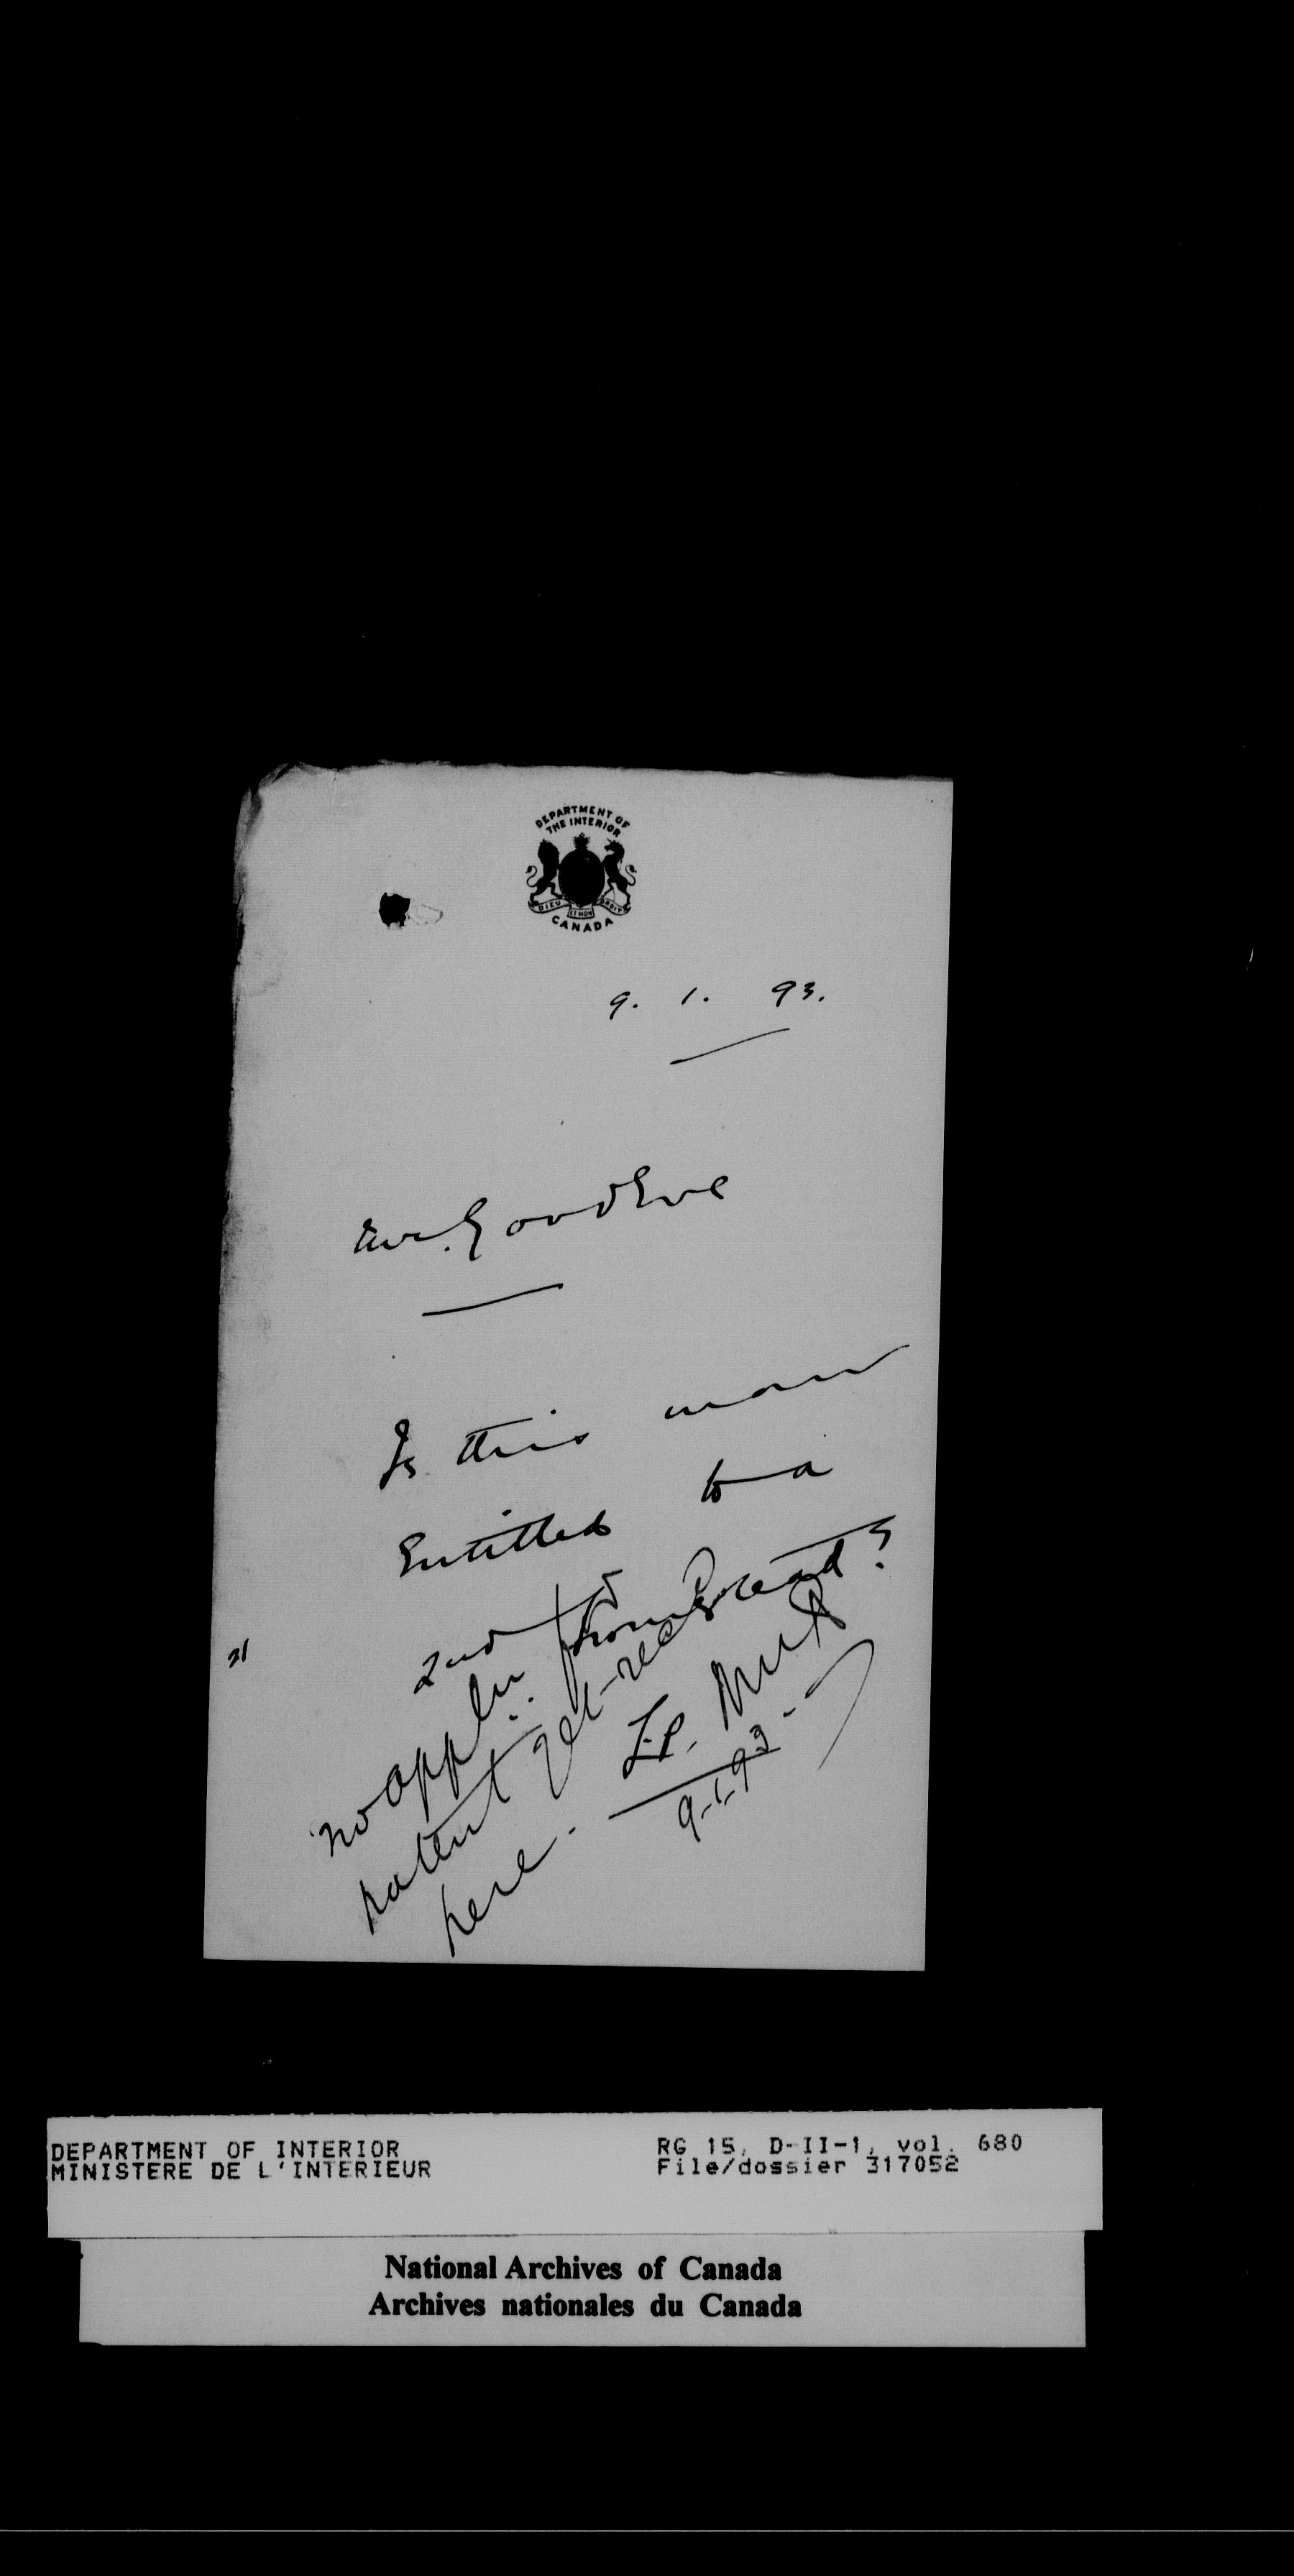 DEPARTMENT OF
THE INTERIOR
DIEU ET MON DROIT
CANADA
9. 1. 93.
Mr. GoodEve
Is this man
Entitled to a
2nd homestead?
no appln. for
patent yet recd
here.
9-1-93
DEPARTMENT OF INTERIOR
MINISTERE DE L'INTERIEUR
RG 15, D-II-1, vol. 680
File/dossier 317052
National Archives of Canada
Archives nationales du Canada